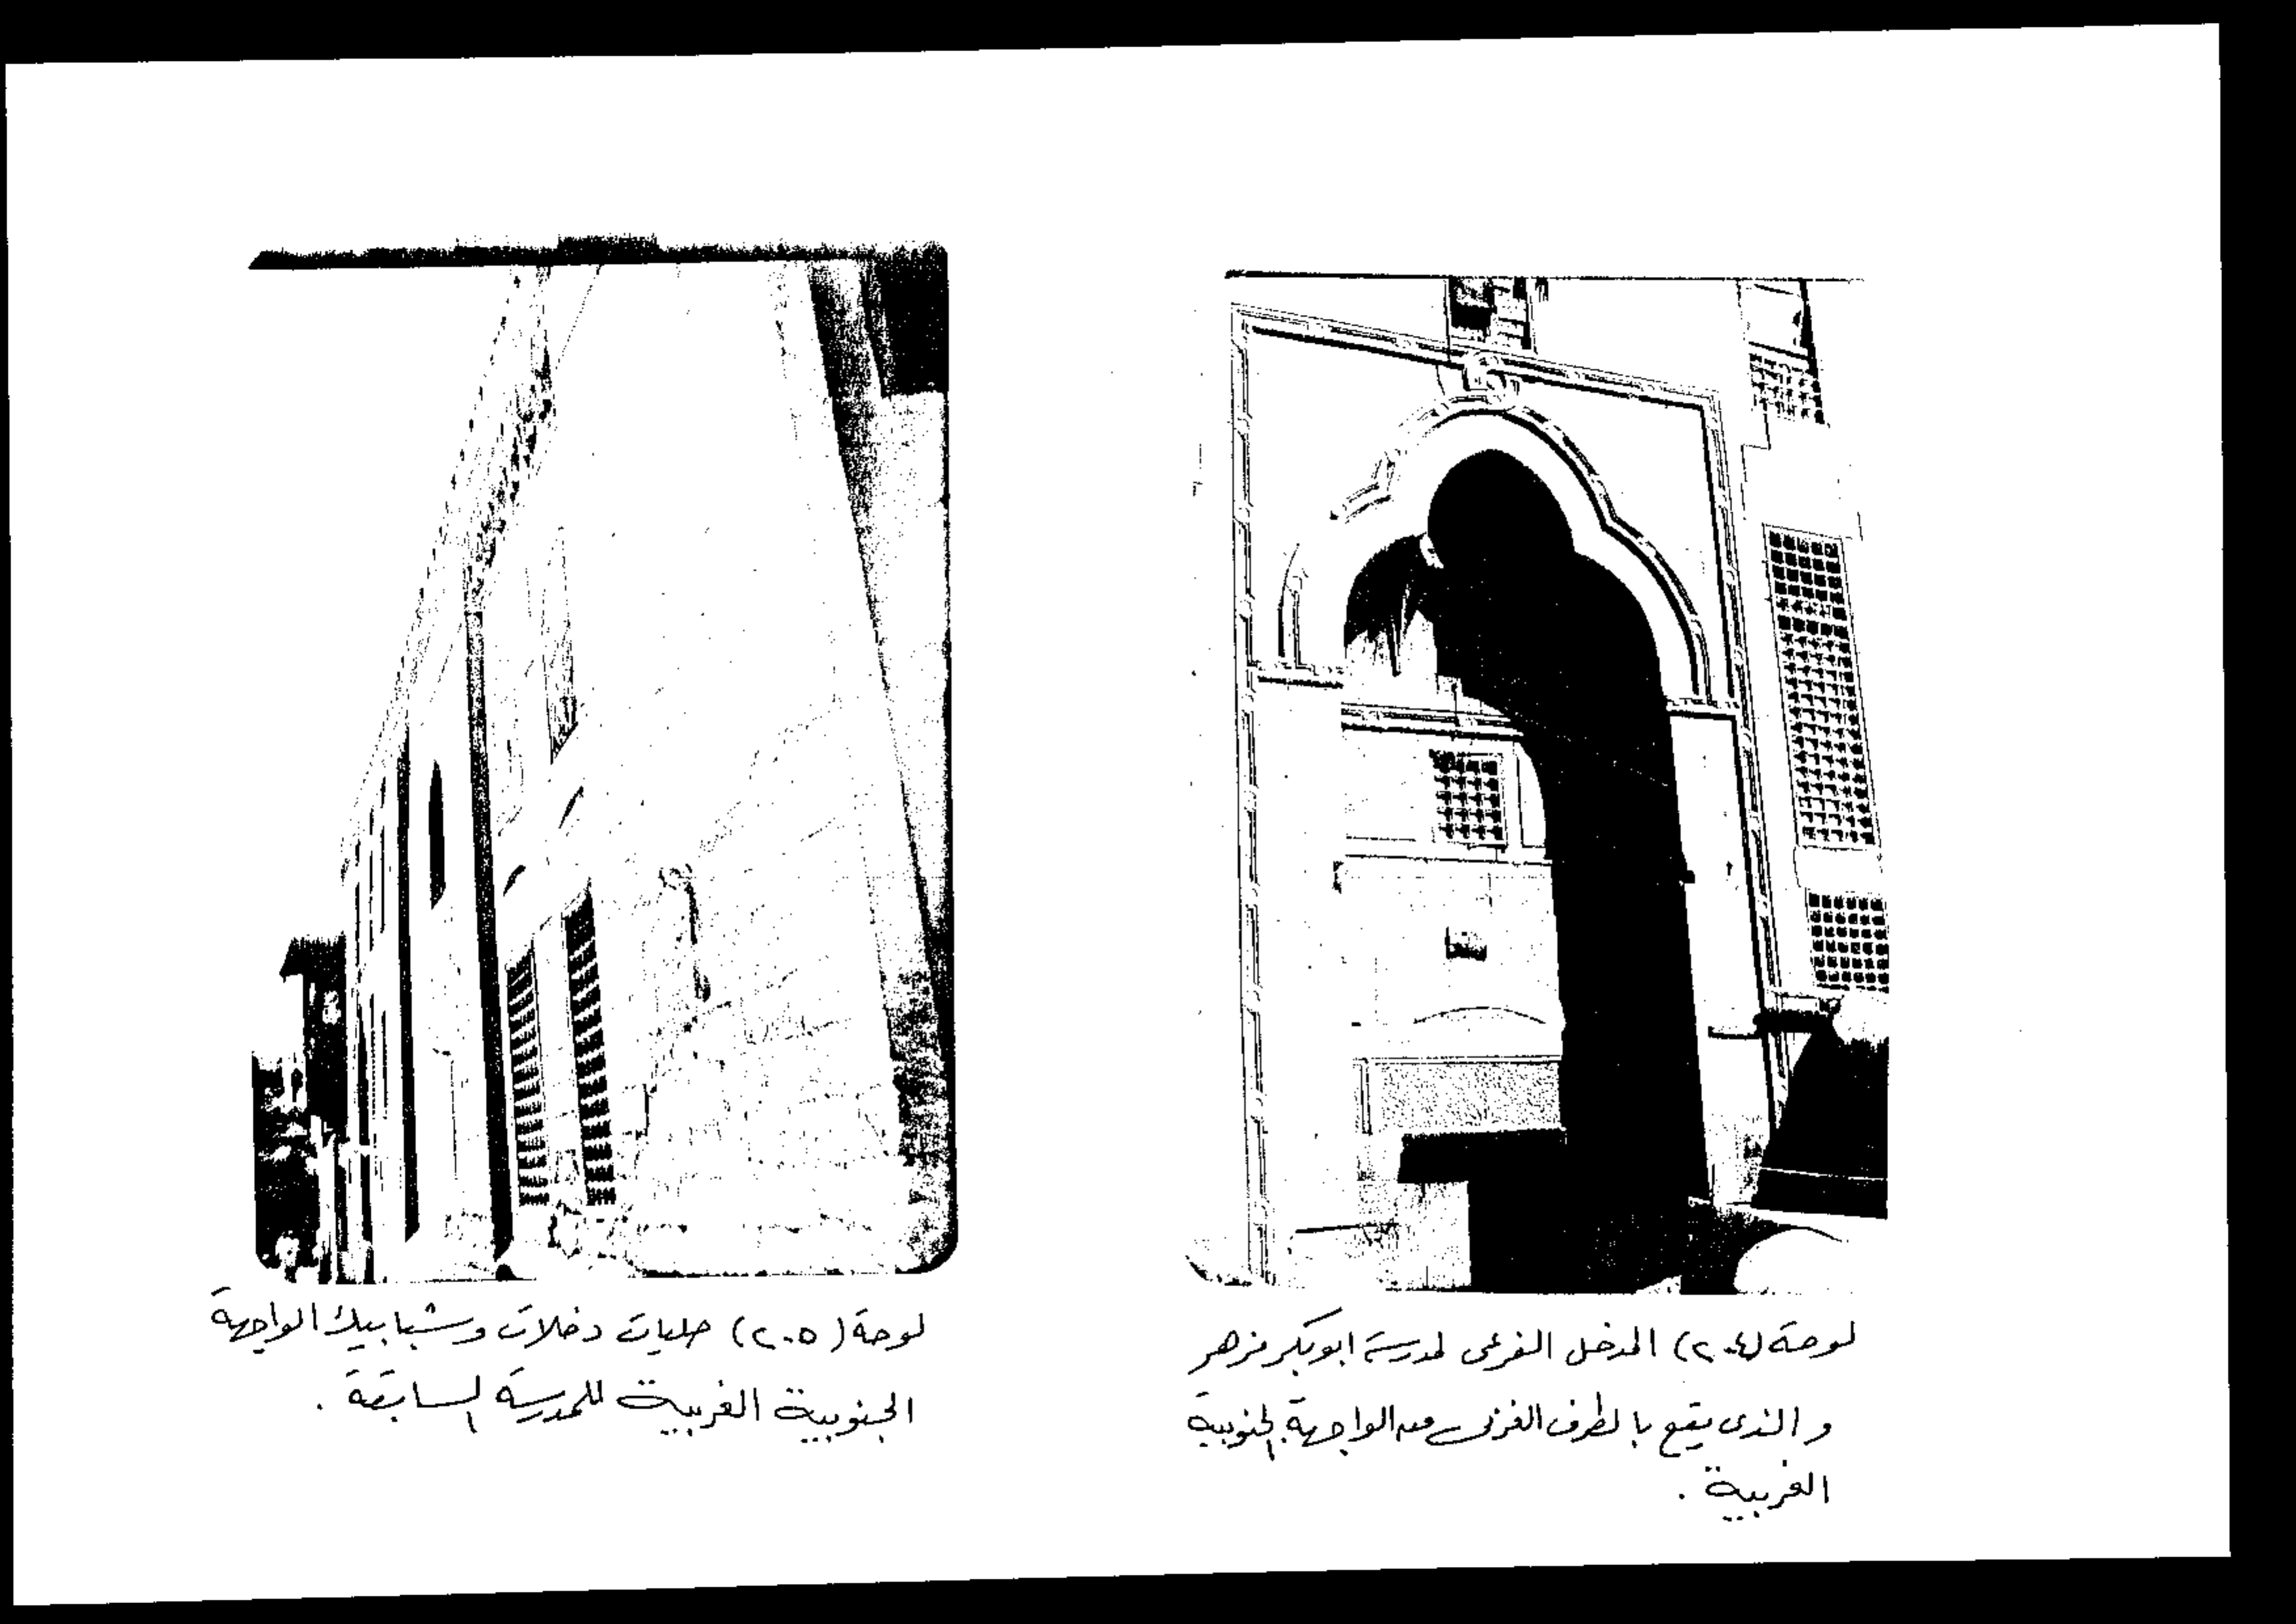 لوحة (٢٠٤) المدخل الفرعى لمدرسة ابوبكر مزهر
و الذى يقع بالطرف الغربى من الواجهة الجنوبية
الغربية .
لوحة (٢٠٥) حليات دخلات وشبابيك الواجهة
الجنوبية الغربية للمدرسة السابقة .